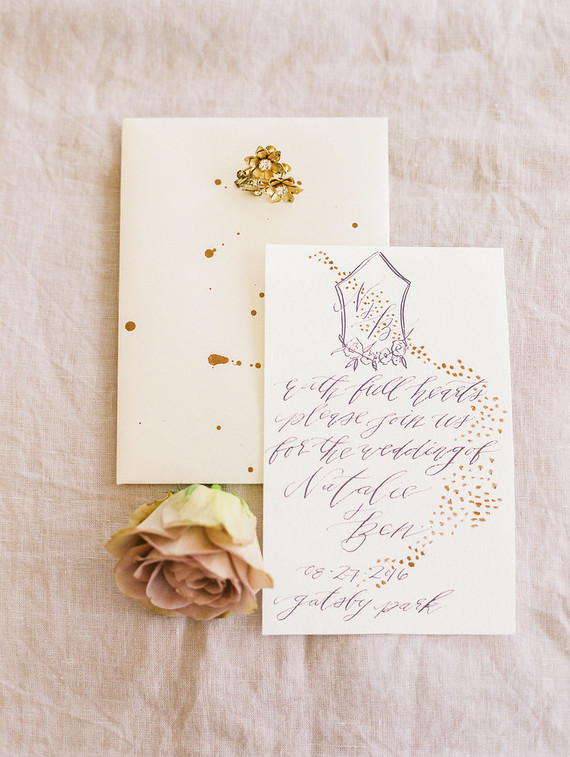 N & B
with full hearts
please join us
for the wedding of
Natalie
&
Ben
08.27.2016
gatsby park